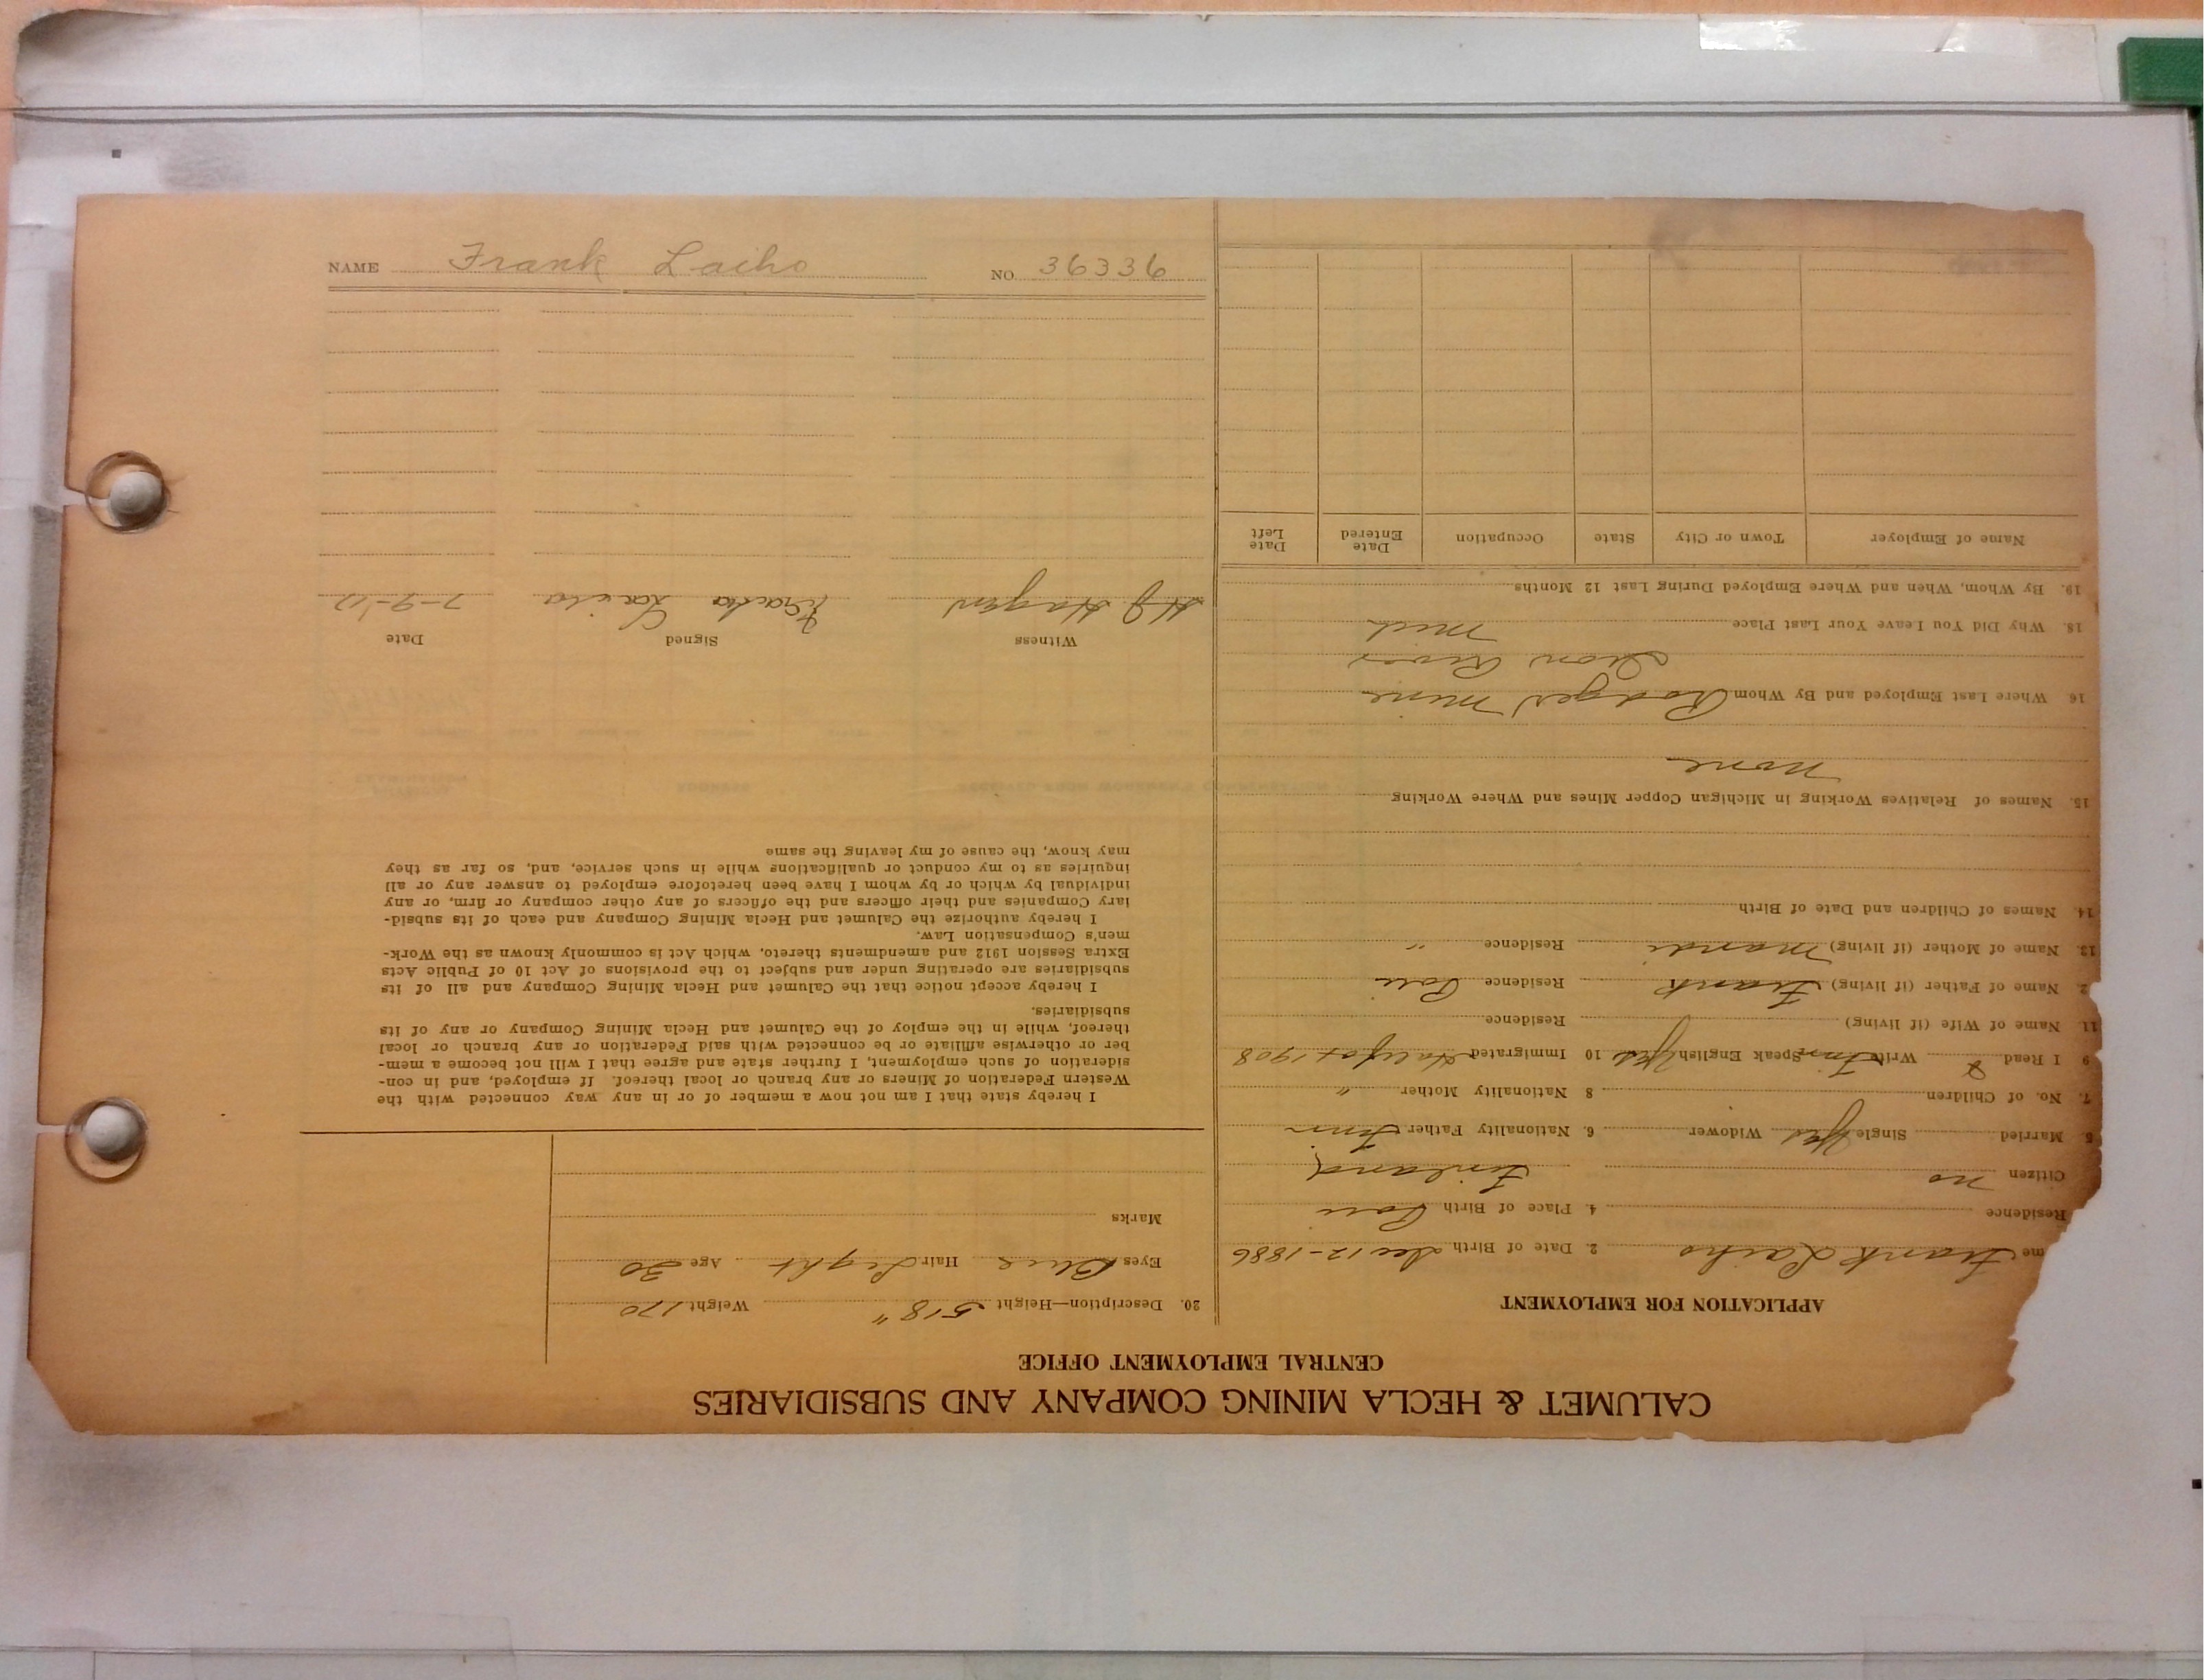 CALUMET & HECLA MINING COMPANY AND SUBSIDIARIES
CENTRAL EMPLOYMENT OFFICE
APPLICATION FOR EMPLOYMENT
me Frank Laiho 2. Date of Birth Dec 12-1886
Residence 4. Place of Birth Pori
Citizen no Finland
5. Married Single Yes Widower 6. Nationality Father Finn
7. No. of Children 8 Nationality Mother "
9 I Read Write Finn Speak English Yes 10 Immigrated Halifax 1908
11. Name of Wife (if living) Residence
2. Name of Father (if living) Frank Residence Pori
13. Name of Mother (if living) Residence "
14. Names of Children and Date of Birth
15. Names of Relatives Working in Michigan Copper Mines and Where Working
None
16 Where Last Employed and By Whom Rodgers Mine
Iron River
Mich
18. Why Did You Leave Your Last Place
19. By Whom, When and Where Employed During Last 12 Months
Name of Employer Town or City State Occupation Date Entered Date Left
20. Description—Height 5'8" Weight 170
Eyes Blue Hair Light Age 30
Marks
I hereby state that I am not now a member of or in any way connected with the
Western Federation of Miners or any branch or local thereof. If employed, and in con-
sideration of such employment, I further state and agree that I will not become a mem-
ber or otherwise affiliate or be connected with said Federation or any branch or local
thereof, while in the employ of the Calumet and Hecla Mining Company or any of its
subsidiaries.
I hereby accept notice that the Calumet and Hecla Mining Company and all of its
subsidiaries are operating under and subject to the provisions of Act 10 of Public Acts
Extra Session 1912 and amendments thereto, which Act is commonly known as the Work-
men's Compensation Law.
I hereby authorize the Calumet and Hecla Mining Company and each of its subsid-
iary Companies and their officers and the officers of any other company or firm, or any
individual by which or by whom I have been heretofore employed to answer any or all
inquiries as to my conduct or qualifications while in such service, and, so far as they
may know, the cause of my leaving the same
Witness Signed Date
H J Hagen Laiho 7-9-17
NAME Frank Laiho NO. 36336